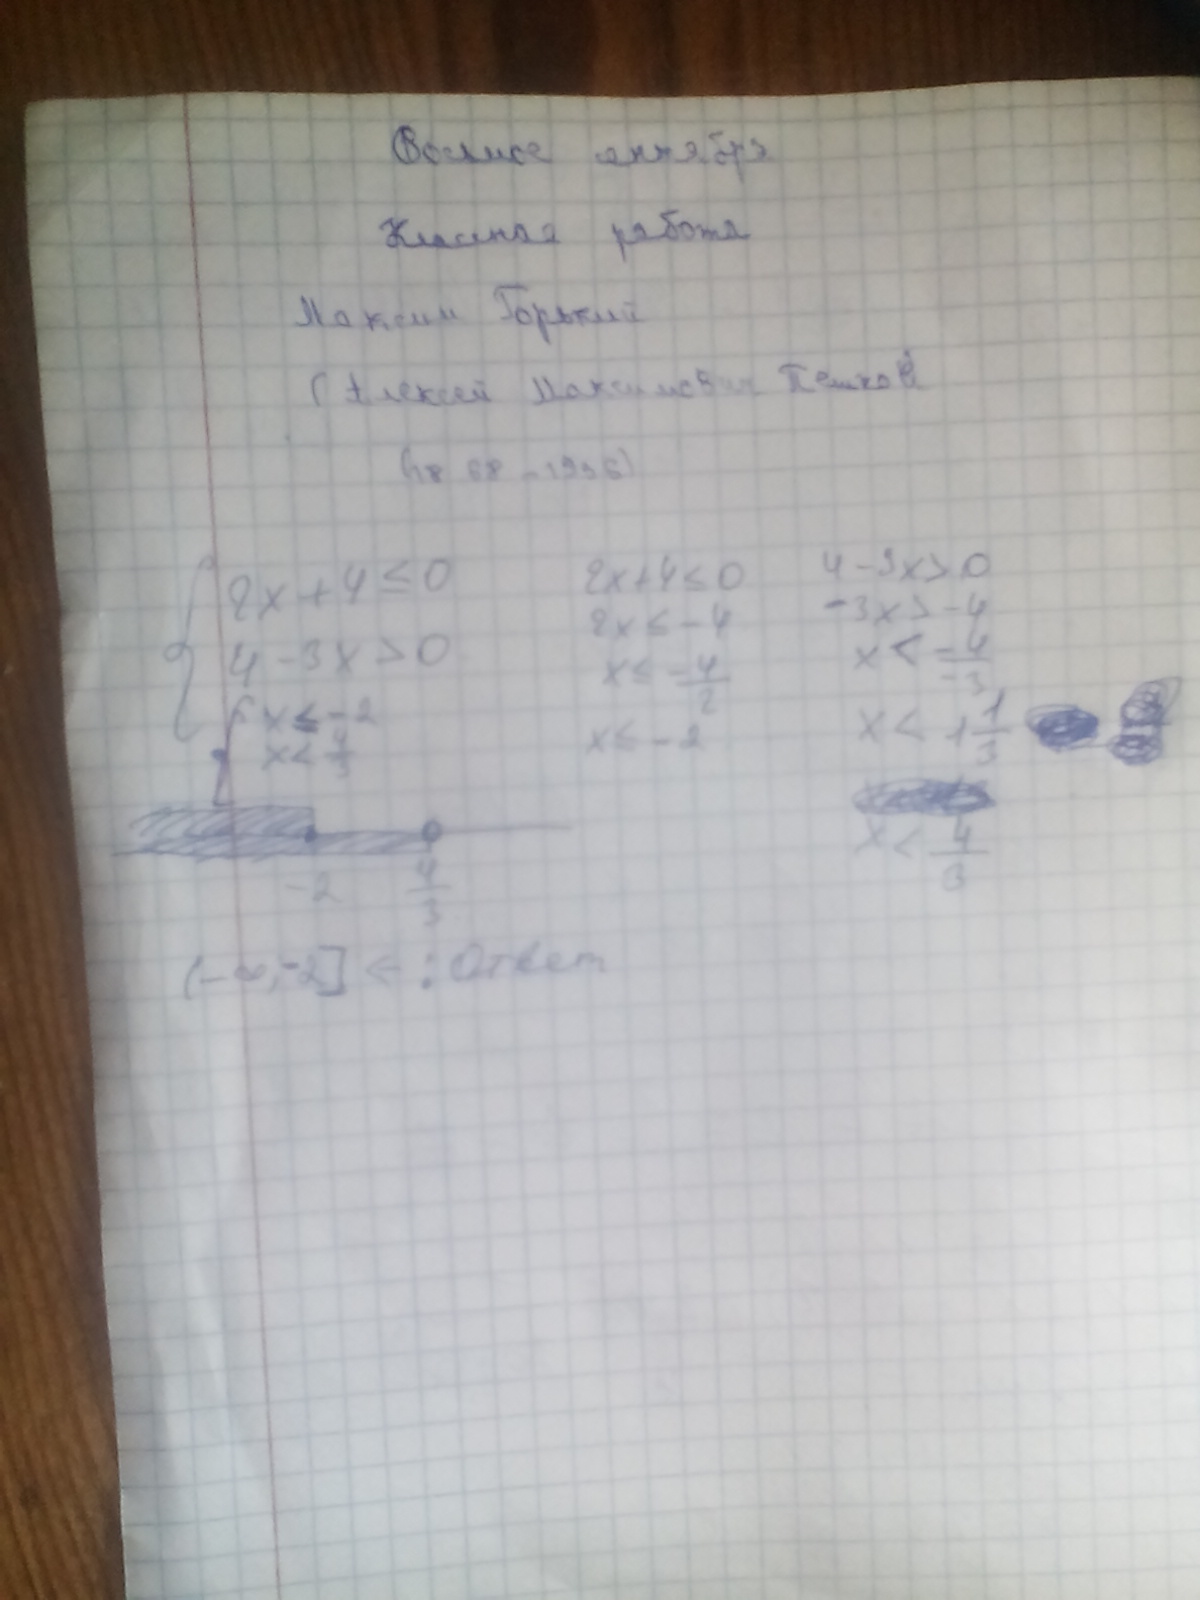 Восьмое октября
Классная работа
Максим Горький
(Алексей Максимович Пешков
(1868-1936)
2x+4≤0
4-3x>0
x≤-2
x<4/3
-2 4/3
(-∞;-2] ← : Ответ
2x+4≤0
2x≤-4
x≤-4/2
x≤-2
4-3x>0
-3x>-4
x<-4/-3
x<1 1/3
x<4/3